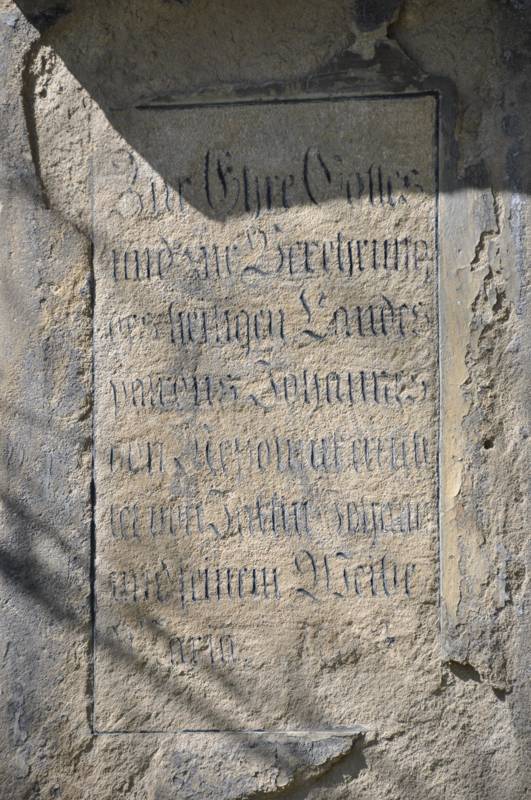 Zur Ehre Gottes
und zur Verehrung
des heiligen Landes
patrons Johannes
von Nepomuk errich
tet von
und seinem Weibe
Maria.